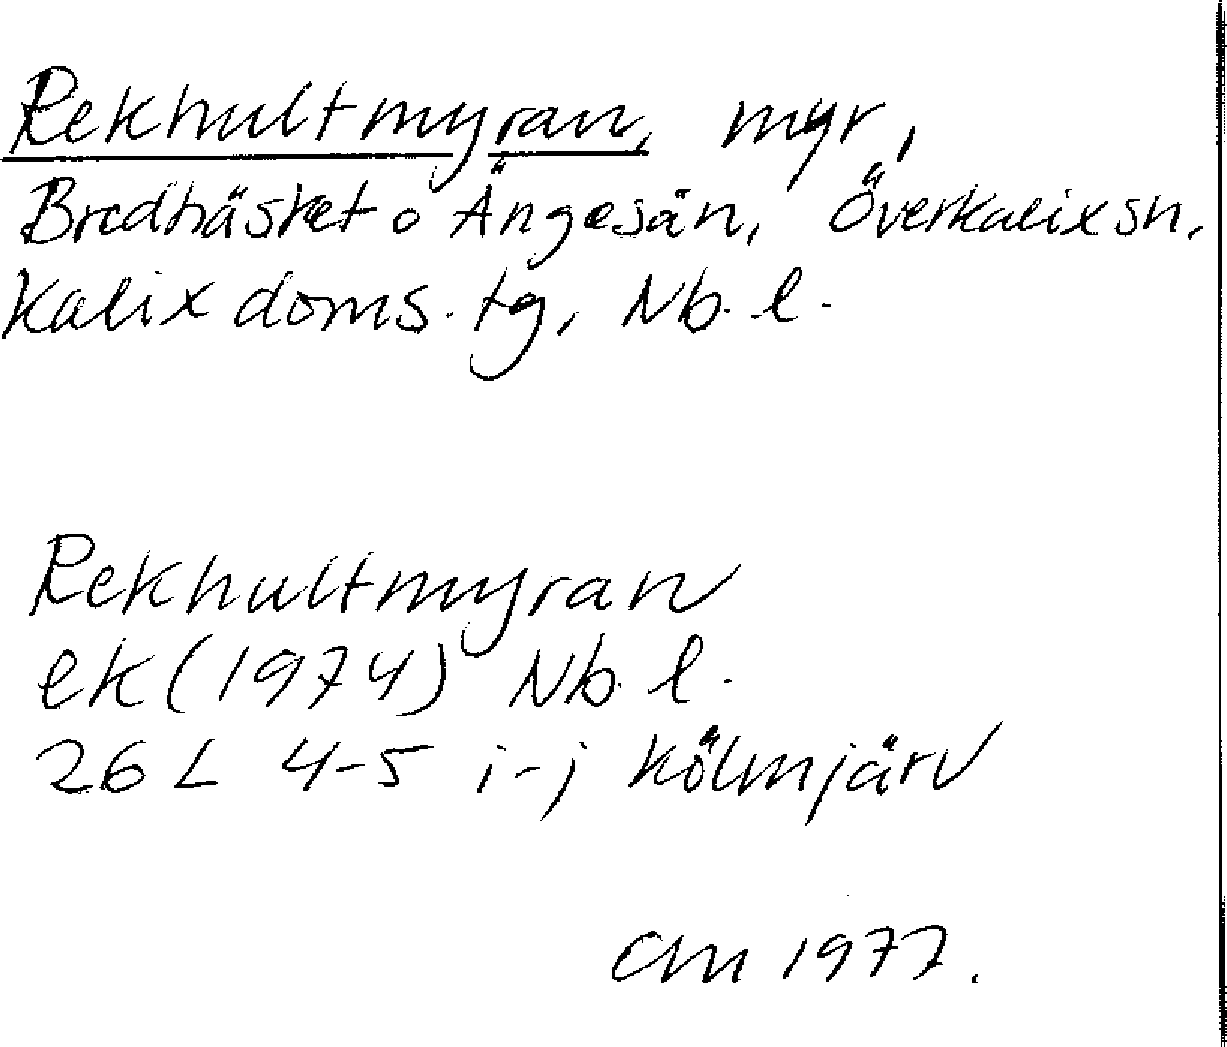 Rekhultmyran, myr,
Bredträsket o Ängesån, Överkalix sn,
Kalix doms. tg, Nb. l.
Rekhultmyran
ek (1974) Nb. l.
26 L 4-5 i-j Kölmjärv
CM 1977.